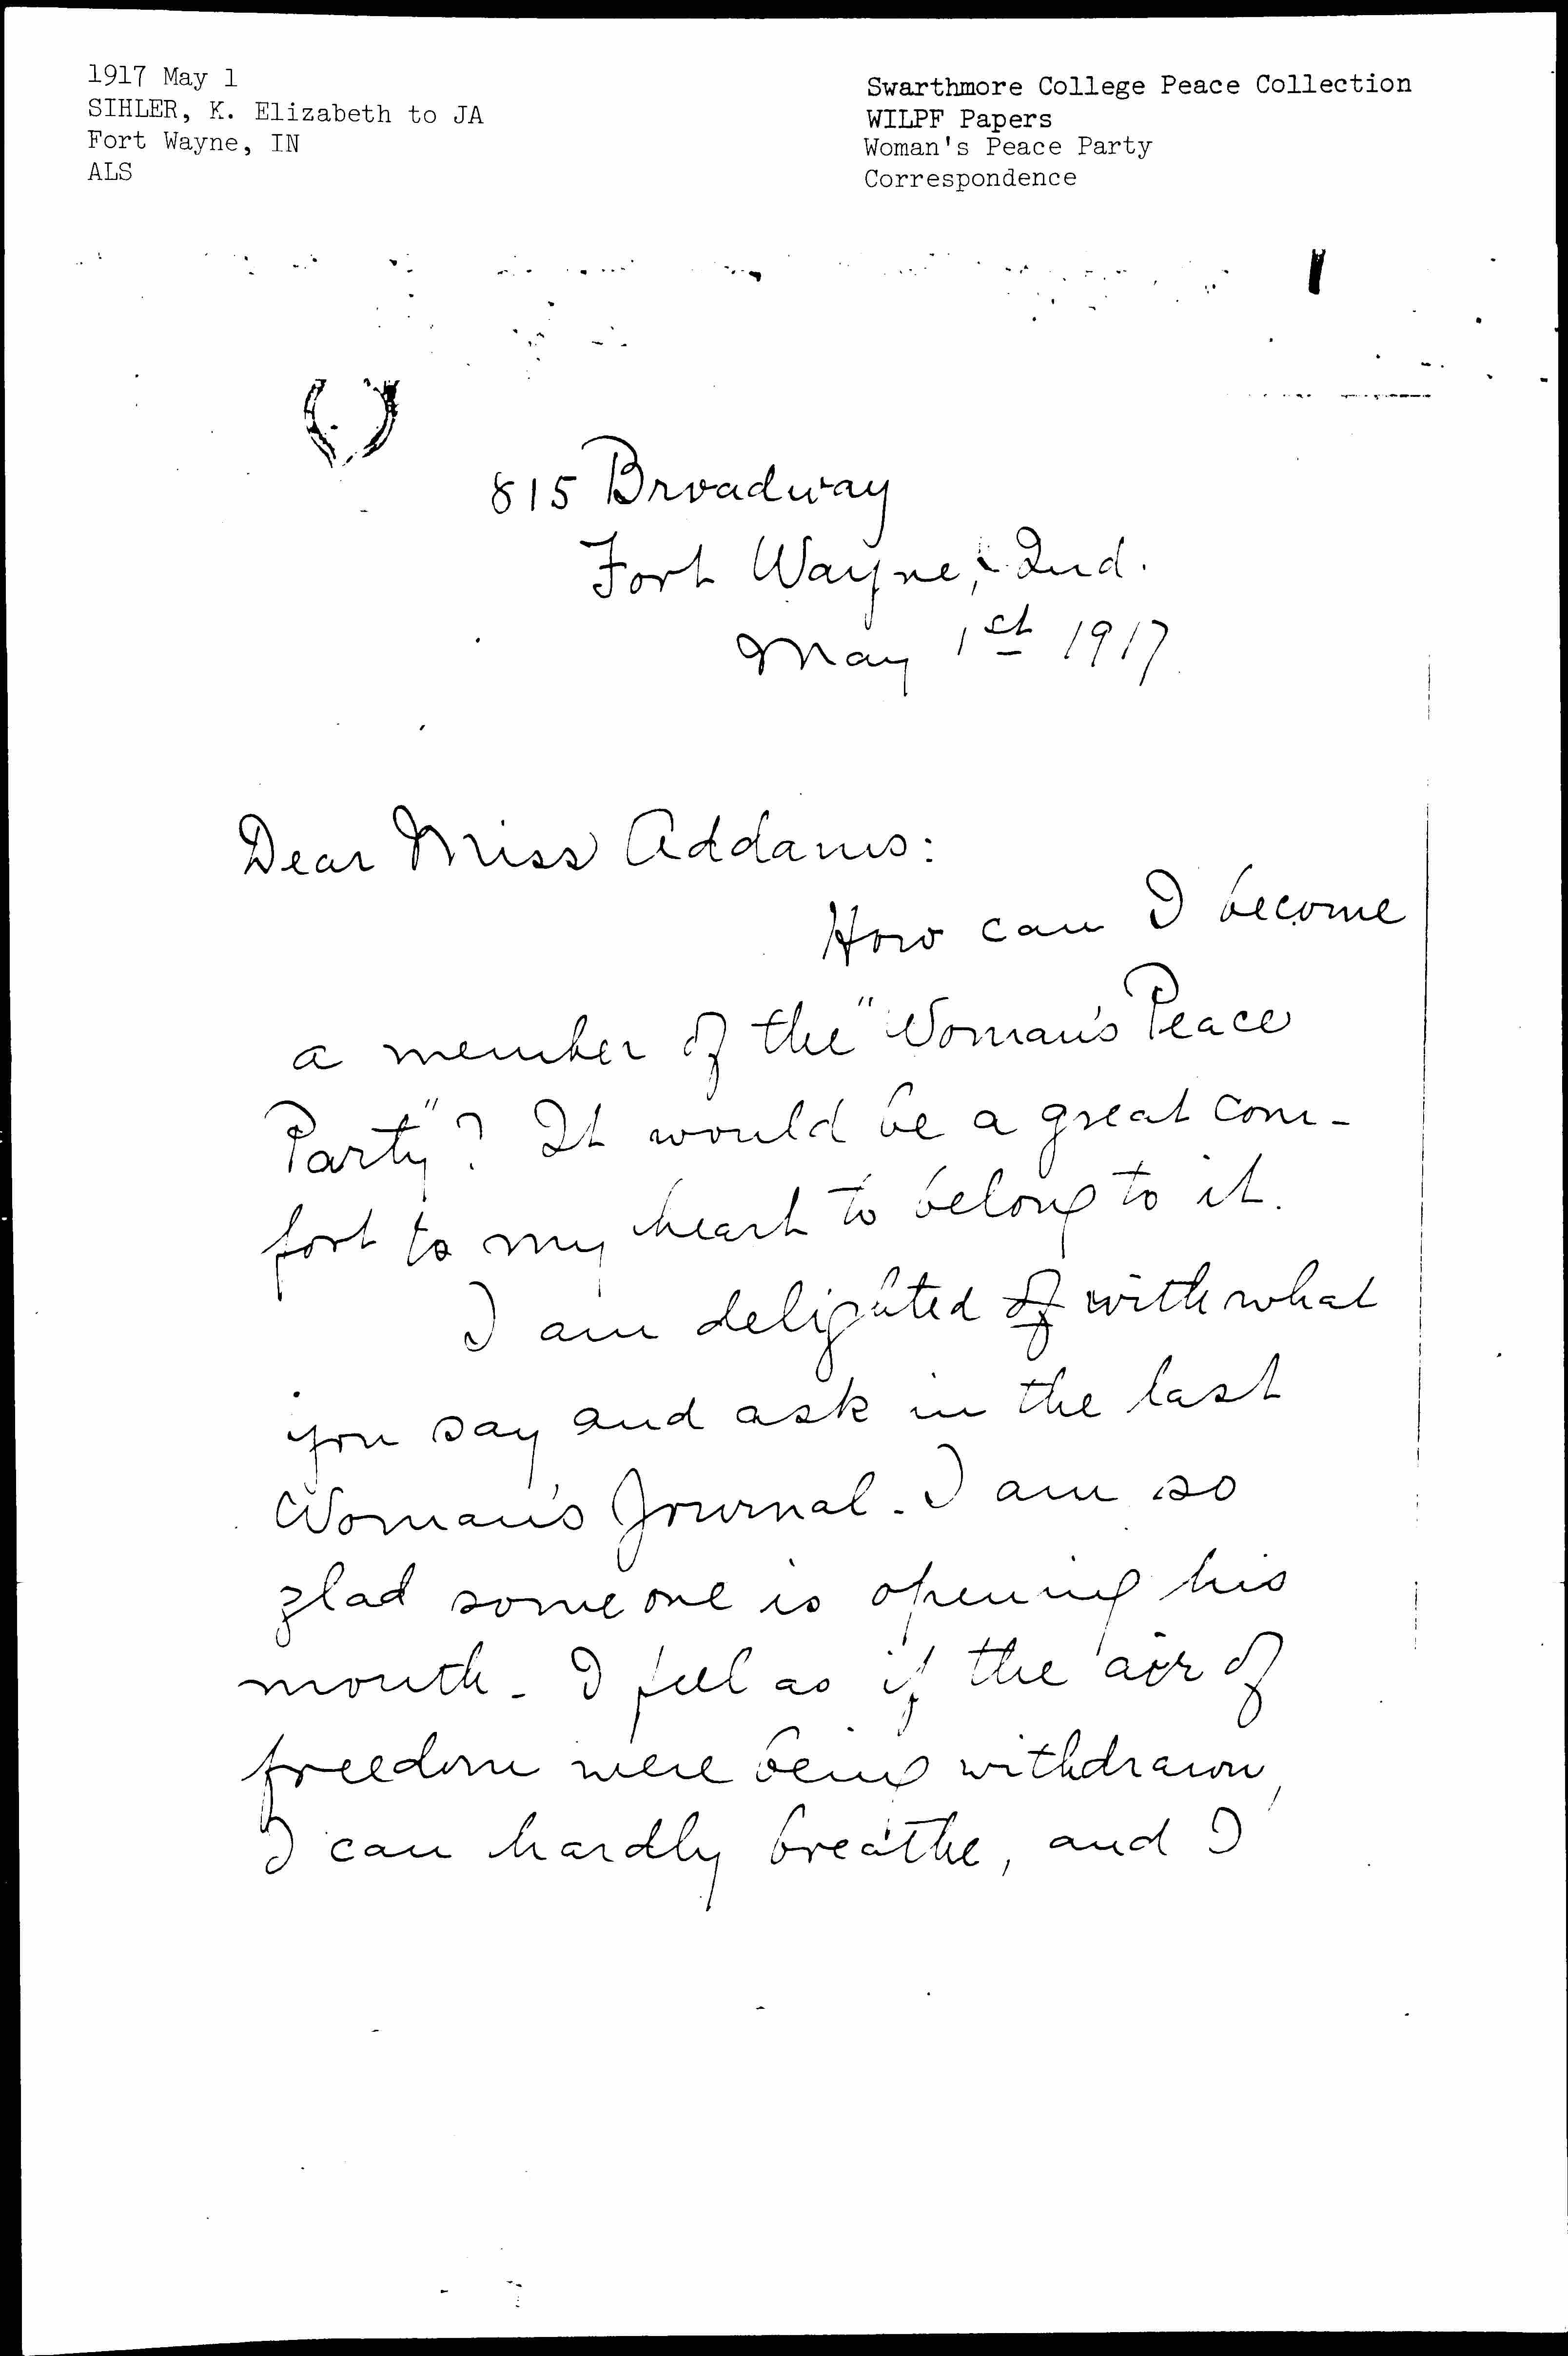 1917 May 1
SIHLER, K. Elizabeth to JA
Fort Wayne, IN
ALS
Swarthmore College Peace Collection
WILPF Papers
Woman's Peace Party
Correspondence
815 Broadway
Fort Wayne, Ind.
May 1st 1917
Dear Miss Addams:
How can I become
a member of the "Woman's Peace
Party"? It would be a great com-
fort to my heart to belong to it.
I am delighted of with what
you say and ask in the last
Woman's Journal. I am so
glad some one is opening his
mouth. I feel as if the air of
freedom were being withdrawn,
I can hardly breathe, and I